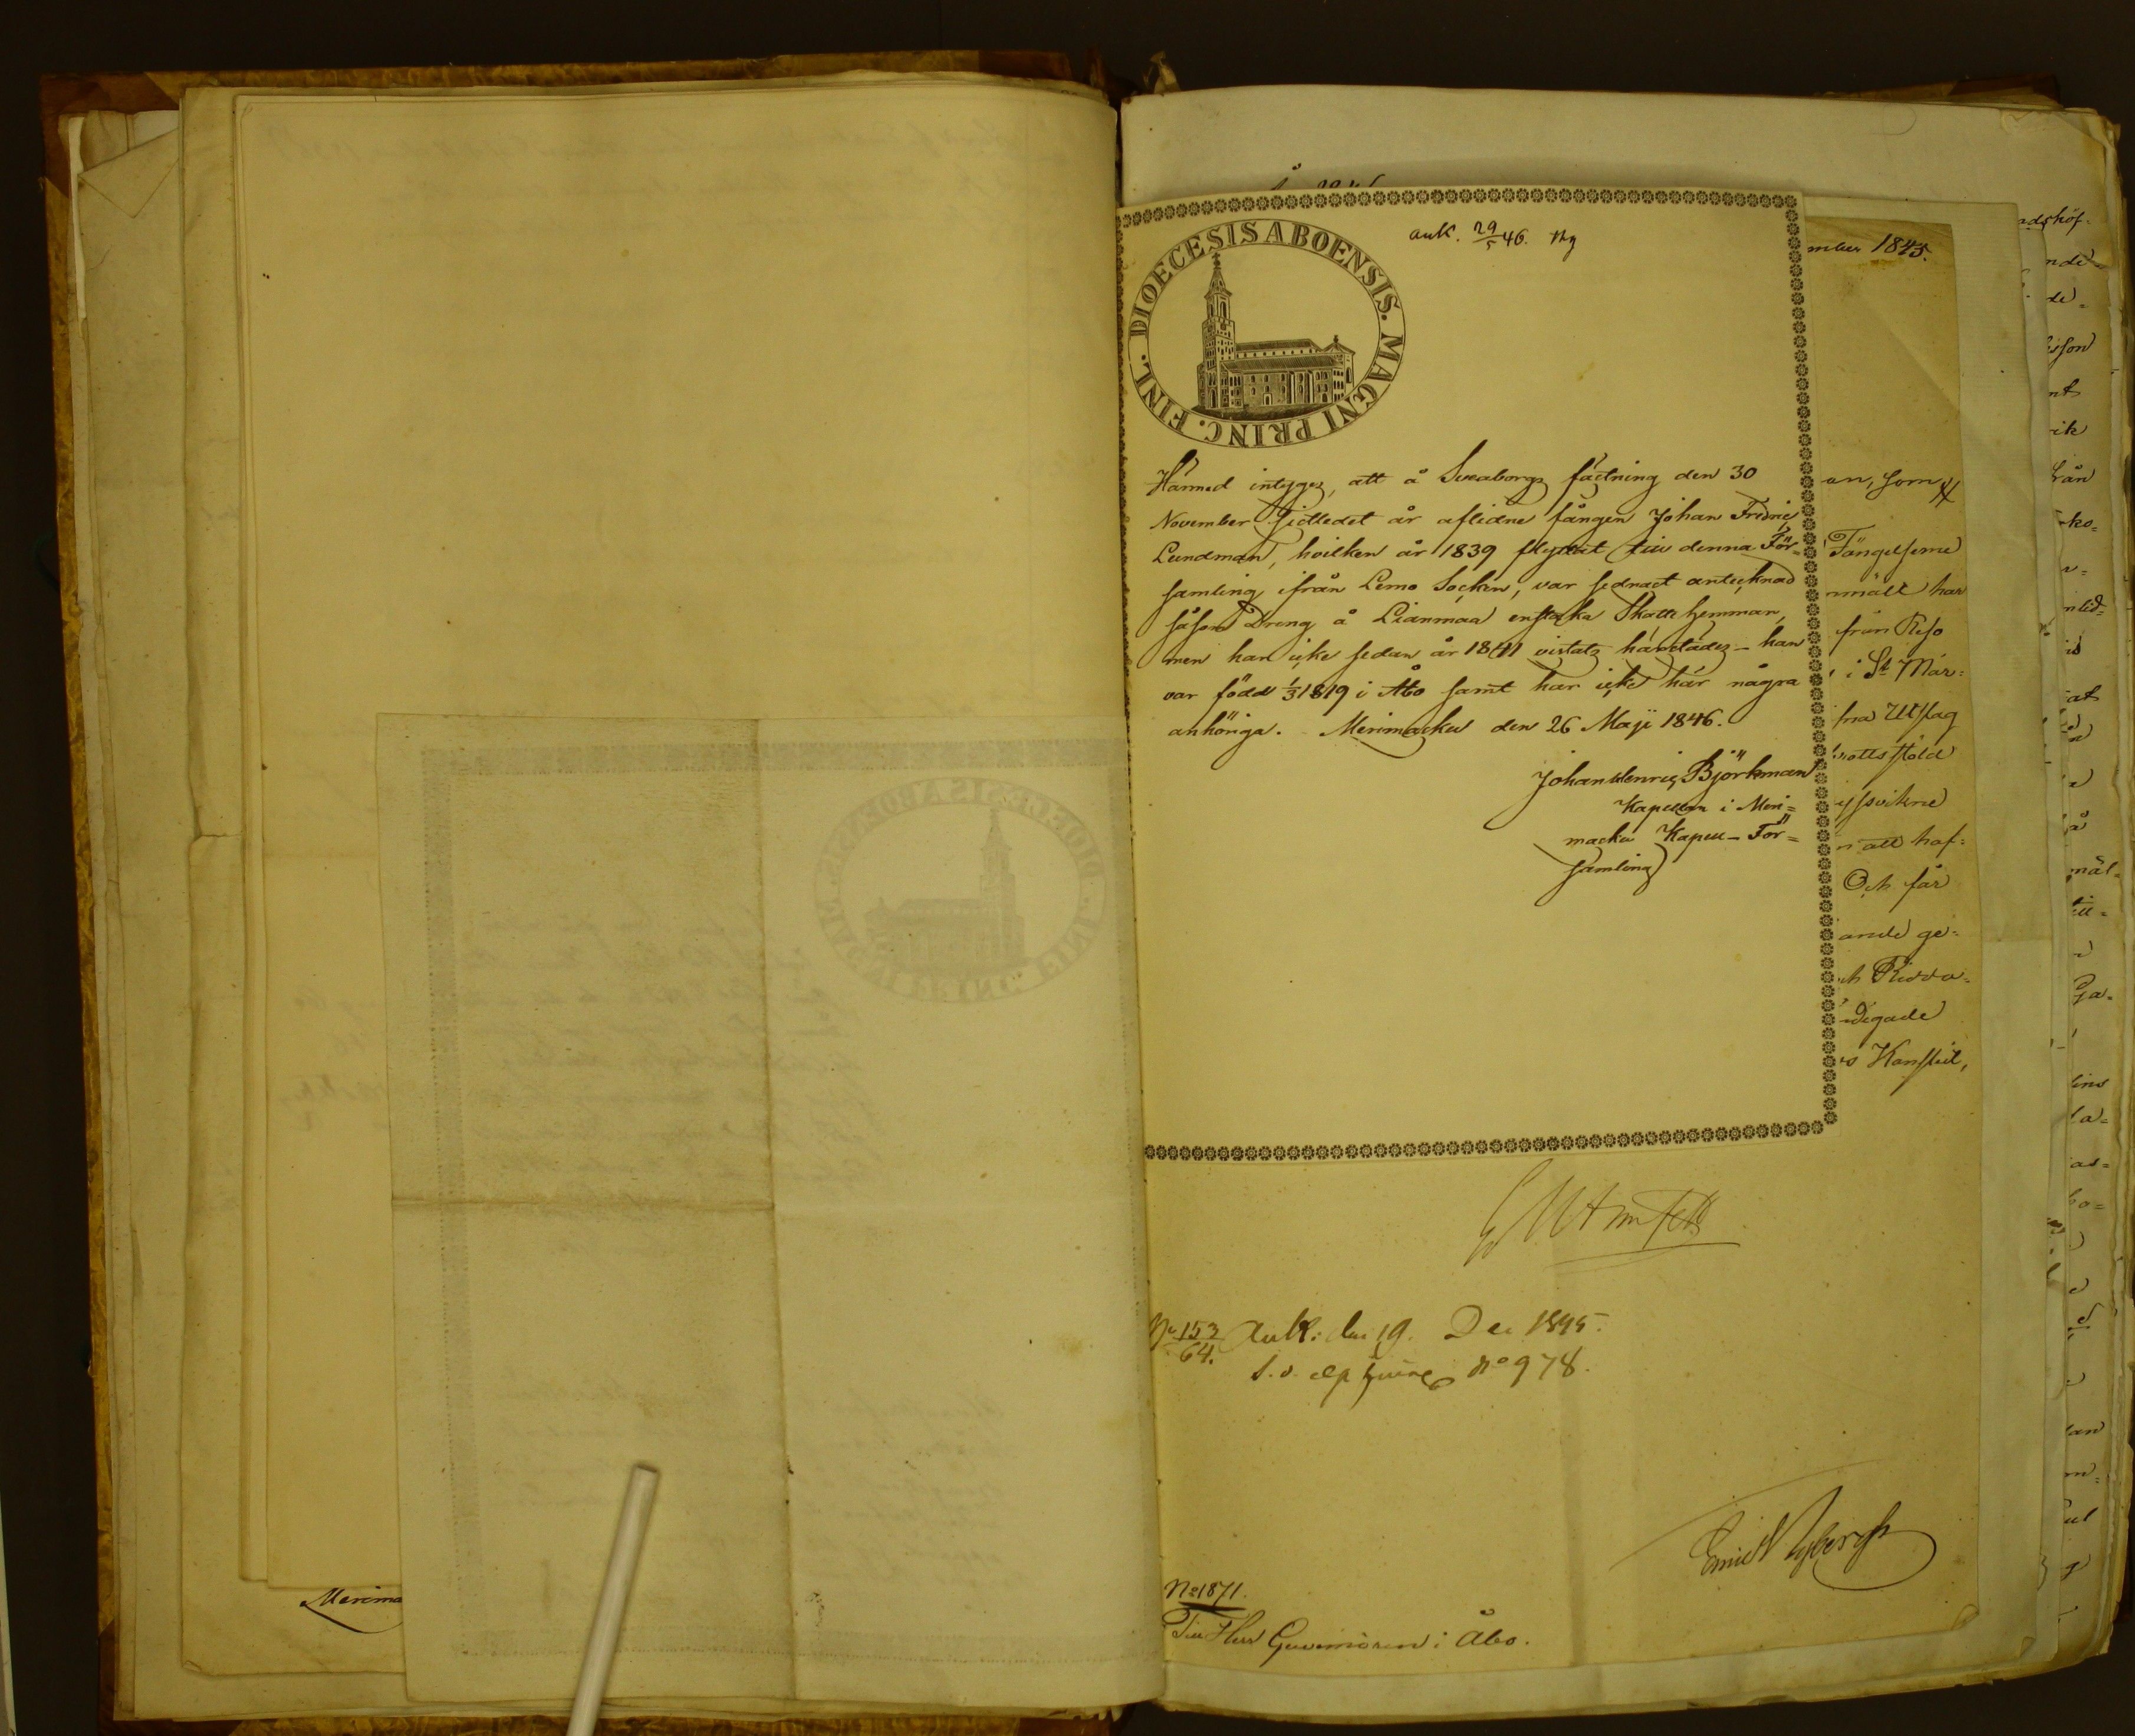 DIOECESIS ABOENSIS. MAGNI PRINC. FINL.
ank. 29/5 46.
Härmed intyges, att å Sveaborgs fästning den 30
November sidledet år aflidne fången Johan Fredric
Lundman, hvilken år 1839 flyttat till denna För-
samling ifrån Lemo Socken, var sednast antecknad
såsom Dreng å Lianmaa enstaka Skattehemman,
men har icke sedan år 1841 vistats härstädes – han
var född 1/3 1819 i Åbo samt har icke här några
anhöriga. Merimasku den 26 Maji 1846.
Johan Henric Björkman
Kapellan i Meri=
masku Kapell-För=
samling
mber 1845.
an, som
Fängelserne
nmält har
från Reso
i St Mår=
fria Utslag
yssvikne
att haf=
Och får
ande ge=
digade
No 153/64. Ank: den 19. Dec 1845.
No 978.
No 1871.
Till Herr Guvernören i Åbo.
Merima
adshöf=
nde
de=
sson
nt
vik
från
ko=
mål=
till=